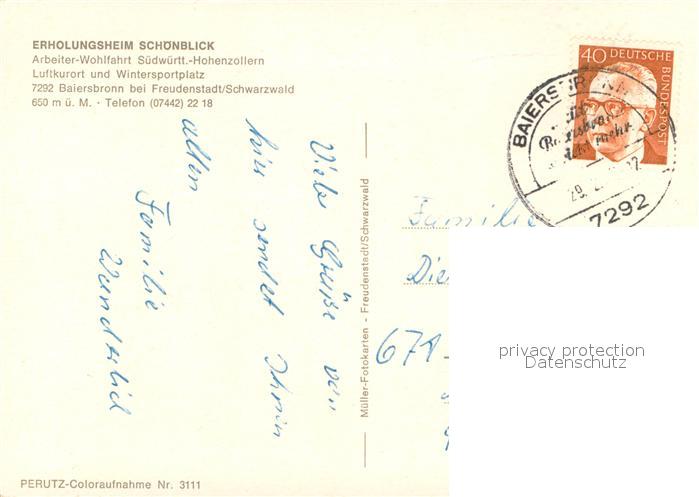 ERHOLUNGSHEIM SCHÖNBLICK
Arbeiter-Wohlfahrt Südwürtt.-Hohenzollern
Luftkurort und Wintersportplatz
7292 Baiersbronn bei Freudenstadt/Schwarzwald
650 m ü. M. · Telefon (07442) 22 18
Viele Grüße von
hier sendet Ihnen
allen
Familie
Wunderlich
Müller-Fotokarten - Freudenstadt/Schwarzwald
40 DEUTSCHE
BUNDESPOST
BAIERSBRONN
mehr
29.
7292
Familie
Die
671
privacy protection
Datenschutz
PERUTZ-Coloraufnahme Nr. 3111